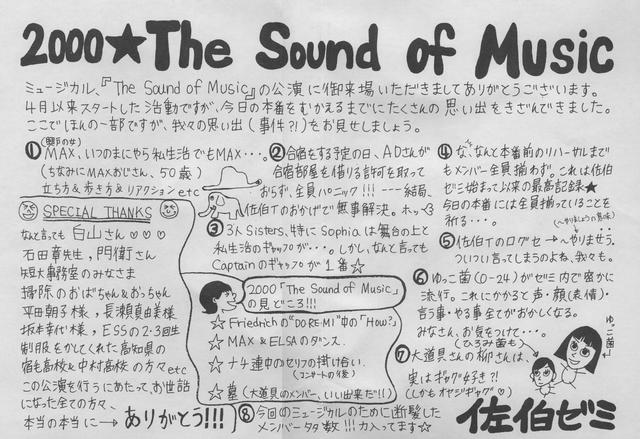 2000★The Sound of Music
ミュージカル、『The Sound of Music』の公演に御来場いただきましてありがとうございます。
4月以来スタートした活動ですが、今日の本番をむかえるまでにたくさんの思い出をきざんできました。
ここでほんの一部ですが、我々の思い出(事件?!)をお見せしましょう。
① MAX、いつのまにやら私生活でもMAX・・・。
(ちなみにMAXおじさん、50歳)
立ち方&歩き方&リアクションetc
② 合宿をする予定の日、ADさんが
合宿部屋も借りる許可を取って
おらず、全員パニック!!! --- 結局、
佐伯Tのおかげで無事解決。ホッ
③ 3人Sisters、特にSophiaは舞台の上と
私生活のギャップが・・・。しかし、なんと言っても
Captainのギャップが1番☆
④ な、なんと本番前のリハーサルまで
もメンバー全員揃わず。これは佐伯
ゼミ始まって以来の最高記録★
今日の本番には全員揃っていることを
祈る・・・。
⑤ 佐伯Tのログセ→へりませう。
ついつい言ってしまうのよね、我々も。
⑥ ゆっこ菌(0-24)がゼミ内で密かに
流行。これにかかると声・顔(表情)・
言う事・やる事全てがおかしくなる。
みなさん、お気をつけて・・・。
(ひろみ菌も)
ゆっこ菌
⑦ 大道具さんの柳さんは、
実はギャグ好き?!
(しかもオヤジギャグ♡)
SPECIAL THANKS
なんと言っても白山さん♡♡♡
石田章先生、門衛さん
短大事務室のみなさま
掃除のおばちゃん&おっちゃん
平田朝子様、長瀬真由美様
坂本幸代様、ESSの2・3回生
制服をかしてくれた高知県の
宿毛高校&中村高校の方々etc
この公演を行うにあたって、お世話
になった全ての方々、
本当の本当に→ありがとう!!!
2000「The Sound of Music」
の見どころ!!!
☆Friedrichの"DO-RE-MI"中の「How?」
☆MAX&ELSAのダンス.
☆ナチ連中のセリフの掛け合い.
(コンサートの後)
☆墓(大道具のメンバー、いい出来だ!!)
⑧ 今回のミュージカルのために断髪した
メンバー多数!!! 力入ってます☆
佐伯ゼミ